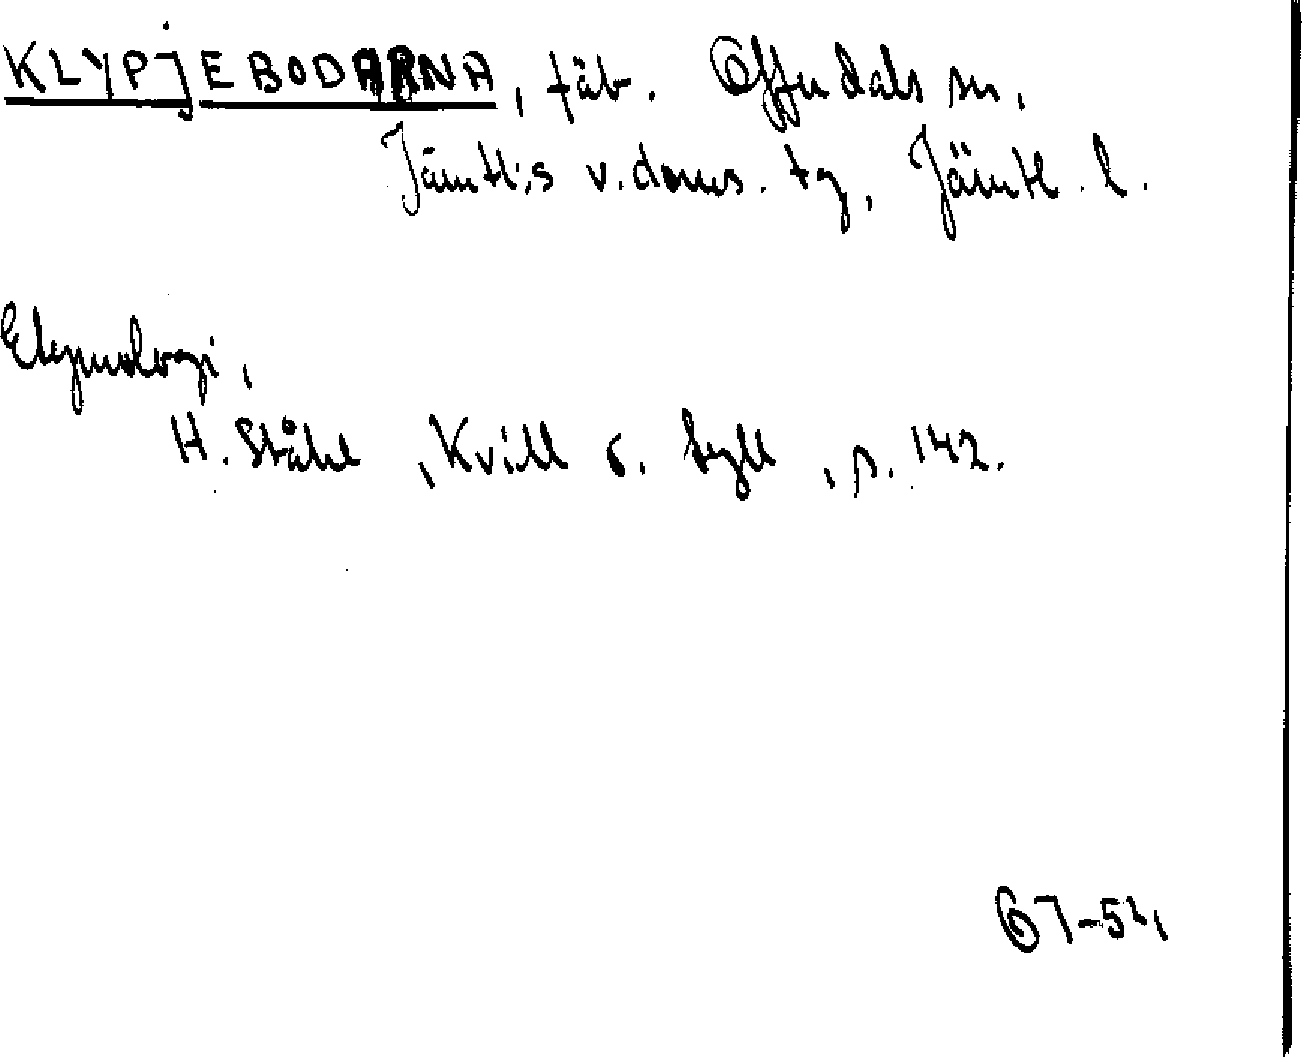 KLYPJEBODARNA, fäb. Offerdals sn,
Jämtl:s v. doms. tg, Jämtl. l.
Etymologi,
H. Ståhl, Kvill o. Tyll, s. 142.
67-54